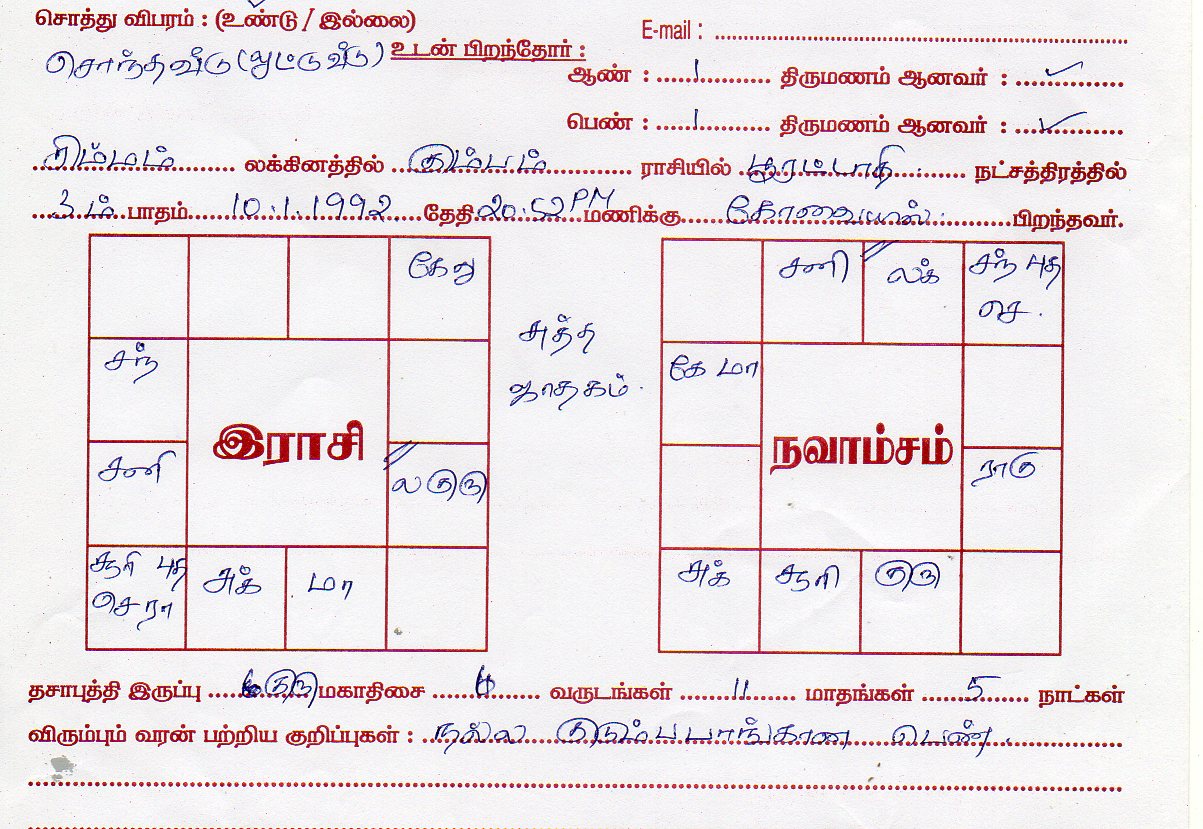 சொத்து விபரம் : (உண்டு / இல்லை)
E-mail :
சொந்தவீடு (ஓட்டுவீடு) உடன் பிறந்தோர் :
ஆண் : 1 திருமணம் ஆனவர் : ✓
பெண் : 1 திருமணம் ஆனவர் : ✓
சிம்மம் லக்கினத்தில் கும்பம் ராசியில் பூரட்டாதி நட்சத்திரத்தில்
3ம் பாதம் 10.1.1992 தேதி 20.52 PM மணிக்கு கோவையில் பிறந்தவர்.
கேது
சந்
சனி
ல குரு
சூரி புத
செ ரா
சுக்
மா
இராசி
சுத்த
ஜாதகம்
சனி
லக்
சந் புத
செ
கே மா
ராகு
சுக்
சூரி
குரு
நவாம்சம்
தசாபுத்தி இருப்பு குரு மகாதிசை 6 வருடங்கள் 11 மாதங்கள் 5 நாட்கள்
விரும்பும் வரன் பற்றிய குறிப்புகள் : நல்ல குடும்பபாங்கான பெண்.